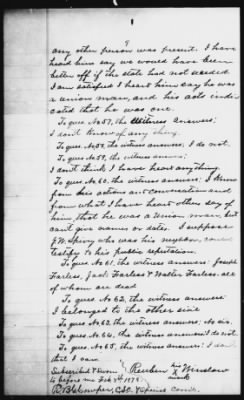 9
any other person was present. I have
heard him say we would have been
better off if the state had not seceded
I am satisfied I heard him say he was
a union man, and his acts indi
cated that he was one.
To ques No 57, the Witness answers;
I don't know of any thing.
To ques No 58, the witness answers, I do not.
To ques No 59, the witness answers;
I don't think I have heard anything.
To ques No 60, the witness answers, I know
from his actions and conversation and
from what I have heard others say of
him, that he was a Union man, but
can't give names or dates. I suppose
J.W. Spivy who was his neighbor, could
testify to his public reputation.
To ques No 61, the witness answers: Joseph
Farless, Jack Farless & Walter Farless, all
of whom are dead
To ques No 62, the witness answers
I belonged to the other side
To ques No 63, the witness answers, No sir.
To ques No 64, the witness answers I do not
To ques No 65, the witness answers: I don't
that I own
Subscribed & sworn Reuben his X mark Winslow
to before me Feby 1878
Special Comr.